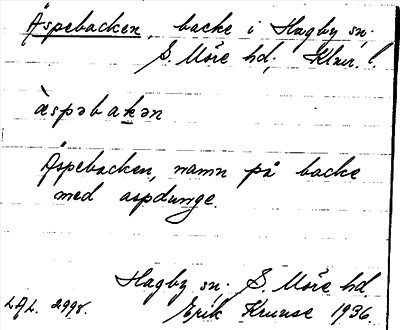 Äspebacken, backe i Hagby sn.
S. Möre hd, Klmr. l.
àspəbakən
Äspebacken, namn på backe
med aspdunge.
Hagby sn, S. Möre hd.
LAL. 2998. Erik Kruuse 1936.